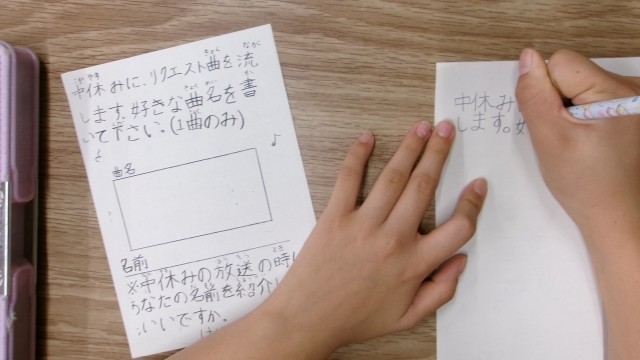 中休みに、リクエスト曲を流
します。好きな曲名を書
いて下さい。(1曲のみ)
曲名
名前
※中休みの放送の時に
あなたの名前を紹介し
いいですか。
中休み
します。